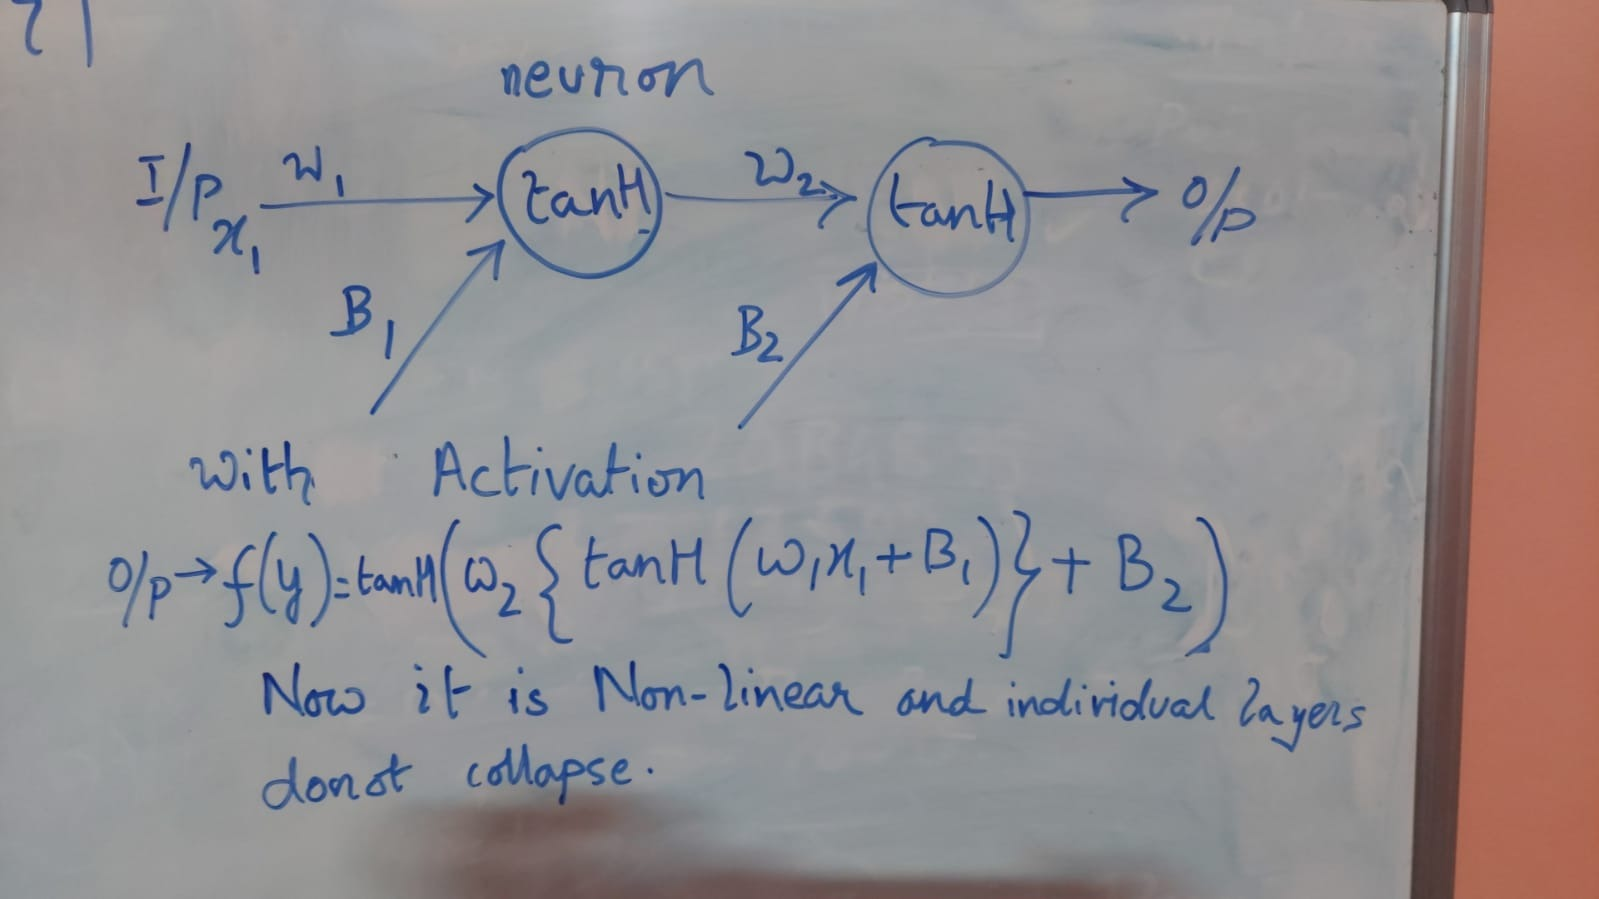 neuron
I/P x₁ w₁ tanH w₂ tanH O/p
B₁ B₂
with Activation
O/p → f(y) = tanH(ω₂{tanH(ω₁x₁ + B₁)} + B₂)
Now it is Non-linear and individual layers
donot collapse.